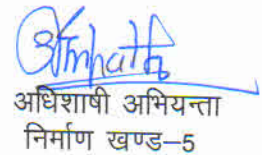 अधिशाषी अभियन्ता
निर्माण खण्ड–5